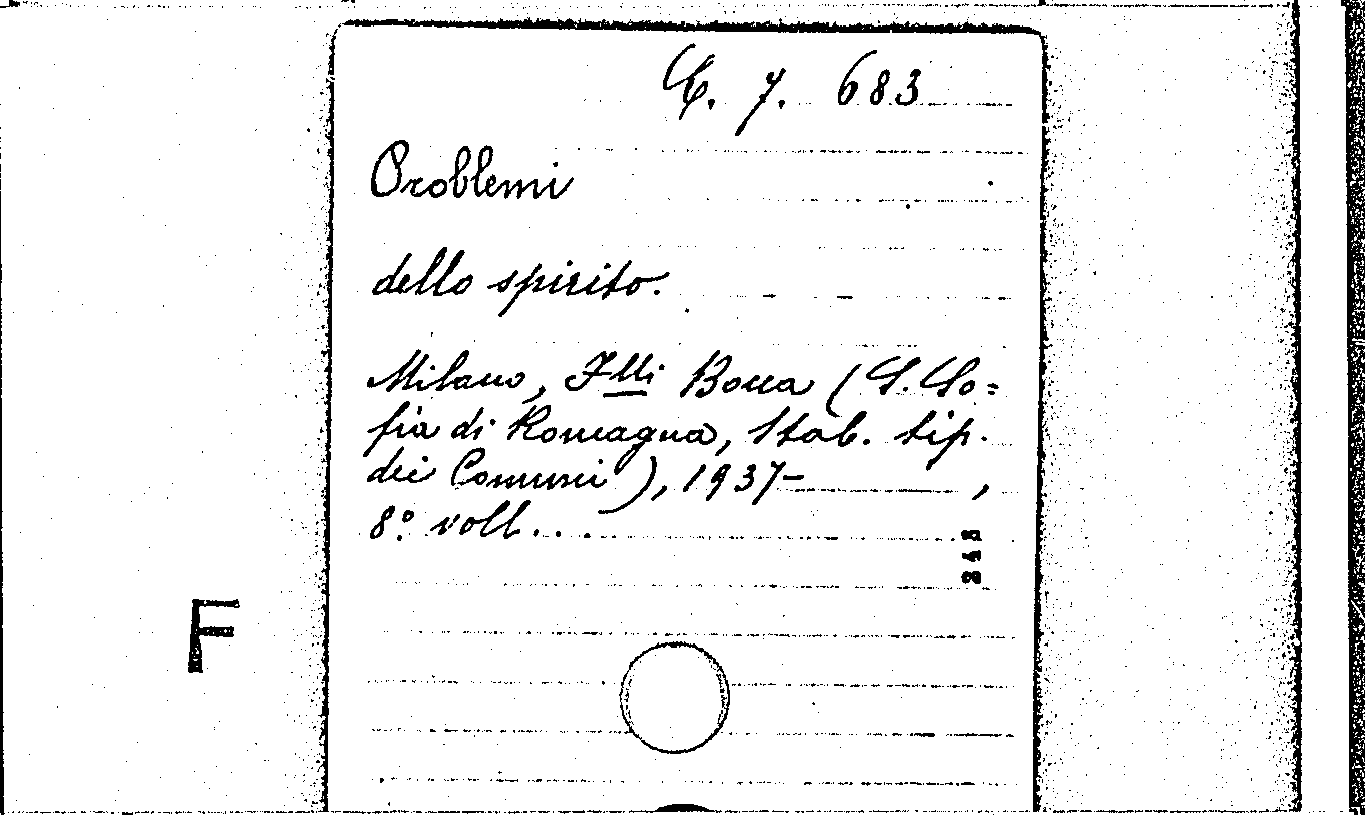 C. 7. 683
Problemi
dello spirito.
Milano, F.lli Bocca (S. So=
fia di Romagna, Stab. tip.
dei Comuni), 1937- ,
8.° voll. . .
F